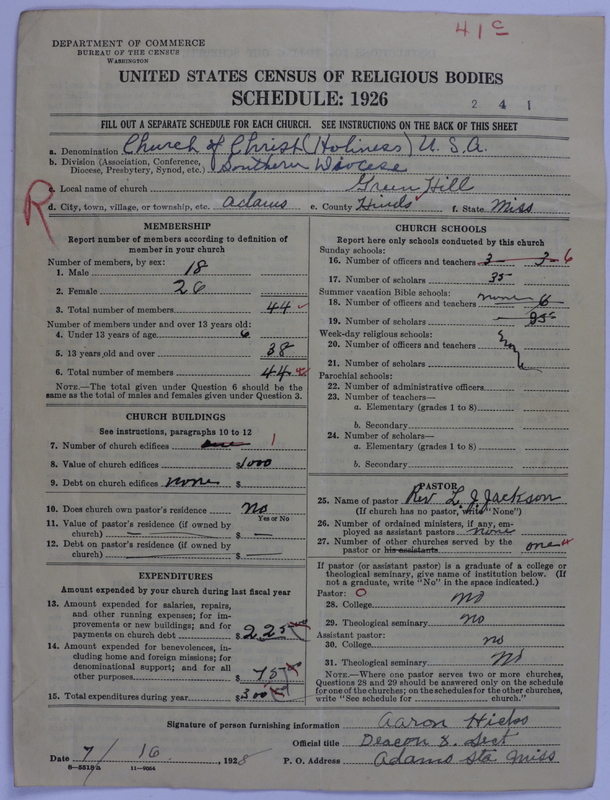 41c
DEPARTMENT OF COMMERCE
BUREAU OF THE CENSUS
WASHINGTON
UNITED STATES CENSUS OF RELIGIOUS BODIES
SCHEDULE: 1926
2 4 1
FILL OUT A SEPARATE SCHEDULE FOR EACH CHURCH. SEE INSTRUCTIONS ON THE BACK OF THIS SHEET
a. Denomination Church of Christ (Holiness) U. S. A.
b. Division (Association, Conference, Diocese, Presbytery, Synod, etc.) Southern Diocese
R
c. Local name of church Green Hill
d. City, town, village, or township, etc. Adams e. County Hinds f. State Miss
MEMBERSHIP
Report number of members according to definition of
member in your church
Number of members, by sex:
1. Male 18
2. Female 26
3. Total number of members 44
Number of members under and over 13 years old:
4. Under 13 years of age 6
5. 13 years old and over 38
6. Total number of members 44
NOTE.—The total given under Question 6 should be the
same as the total of males and females given under Question 3.
CHURCH BUILDINGS
See instructions, paragraphs 10 to 12
7. Number of church edifices one 1
8. Value of church edifices $1000
9. Debt on church edifices none $
10. Does church own pastor's residence No
Yes or No
11. Value of pastor's residence (if owned by
church) — $ —
12. Debt on pastor's residence (if owned by
church) — $ —
EXPENDITURES
Amount expended by your church during last fiscal year
13. Amount expended for salaries, repairs,
and other running expenses; for im-
provements or new buildings; and for
payments on church debt $225
14. Amount expended for benevolences, in-
cluding home and foreign missions; for
denominational support; and for all
other purposes $75
15. Total expenditures during year $300
CHURCH SCHOOLS
Report here only schools conducted by this church
Sunday schools:
16. Number of officers and teachers 3 — 3 - 6
17. Number of scholars 35
Summer vacation Bible schools:
18. Number of officers and teachers none 6
19. Number of scholars —
Week-day religious schools:
20. Number of officers and teachers
21. Number of scholars
Parochial schools:
22. Number of administrative officers
23. Number of teachers—
a. Elementary (grades 1 to 8)
b. Secondary
24. Number of scholars—
a. Elementary (grades 1 to 8)
b. Secondary
PASTOR
25. Name of pastor Rev L. J. Jackson
(If church has no pastor, write "None")
26. Number of ordained ministers, if any, em-
ployed as assistant pastors none
27. Number of other churches served by the
pastor or his assistants one
If pastor (or assistant pastor) is a graduate of a college or
theological seminary, give name of institution below. (If
not a graduate, write "No" in the space indicated.)
Pastor: O
28. College No
29. Theological seminary No
Assistant pastor:
30. College no
31. Theological seminary No
NOTE.—Where one pastor serves two or more churches,
Questions 28 and 29 should be answered only on the schedule
for one of the churches; on the schedules for the other churches,
write "See schedule for ........ church."
Signature of person furnishing information Aaron
Official title Deacon & Sect
Date 7/16, 1928 P. O. Address Adams Sta Miss
8—5518a 11—9054